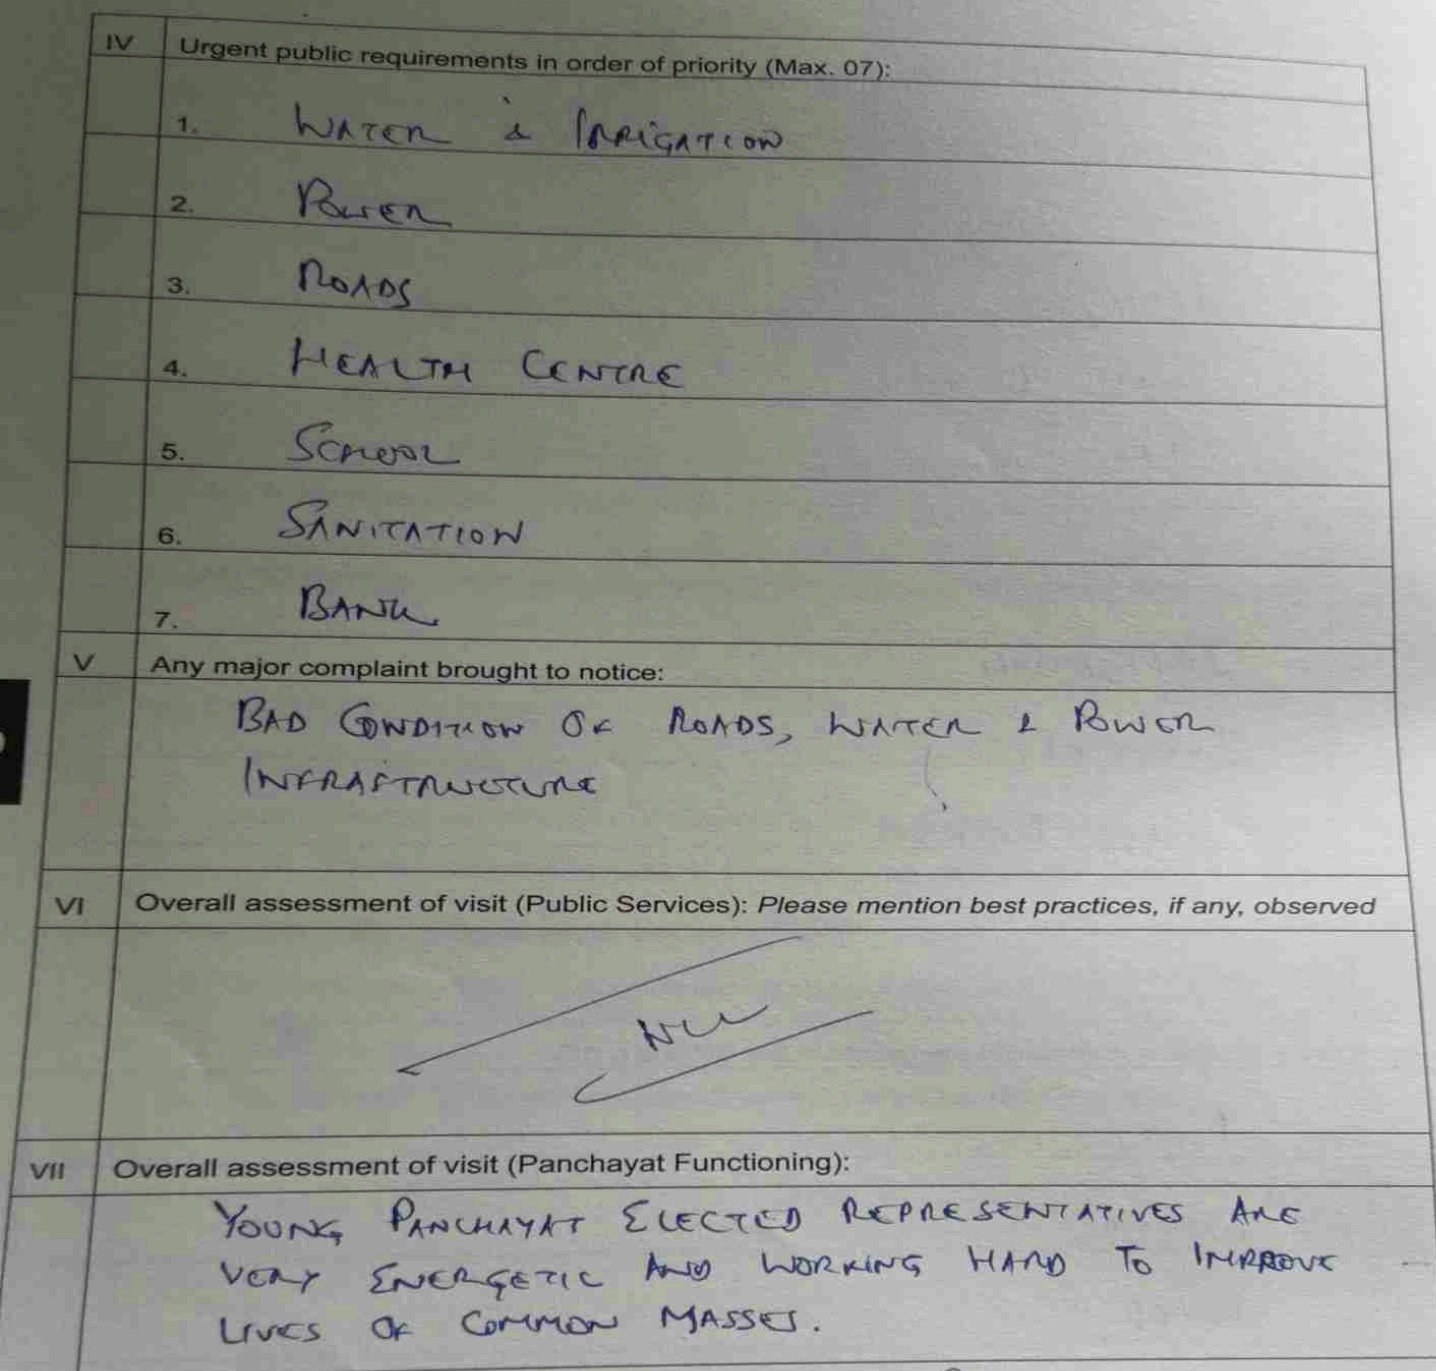 IV Urgent public requirements in order of priority (Max. 07):
1. WATER & IRRIGATION
2. POWER
3. ROADS
4. HEALTH CENTRE
5. SCHOOL
6. SANITATION
7. BANK
V Any major complaint brought to notice:
BAD CONDITION OF ROADS, WATER & POWER
INFRASTRUCTURE
VI Overall assessment of visit (Public Services): Please mention best practices, if any, observed
NIL
VII Overall assessment of visit (Panchayat Functioning):
YOUNG PANCHAYAT ELECTED REPRESENTATIVES ARE
VERY ENERGETIC AND WORKING HARD TO IMPROVE
LIVES OF COMMON MASSES.